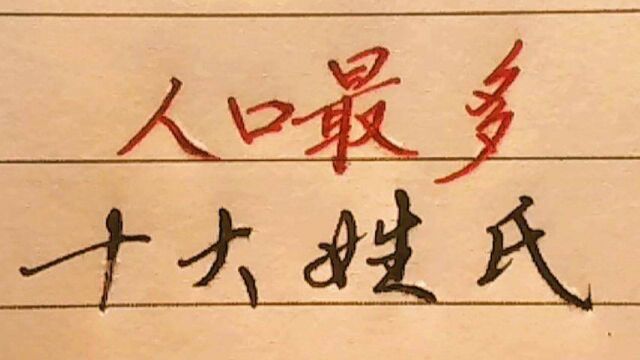 人口最多
十大姓氏